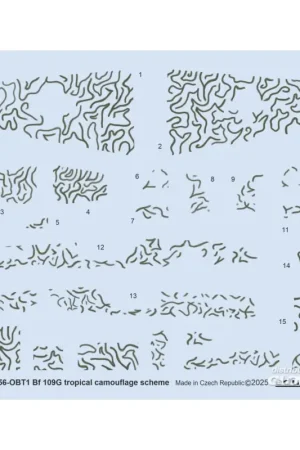 1
2
6
8
9
3
4
5
7
11
12
14
13
15
56-OBT1 Bf 109G tropical camouflage scheme Made in Czech Republic©2025